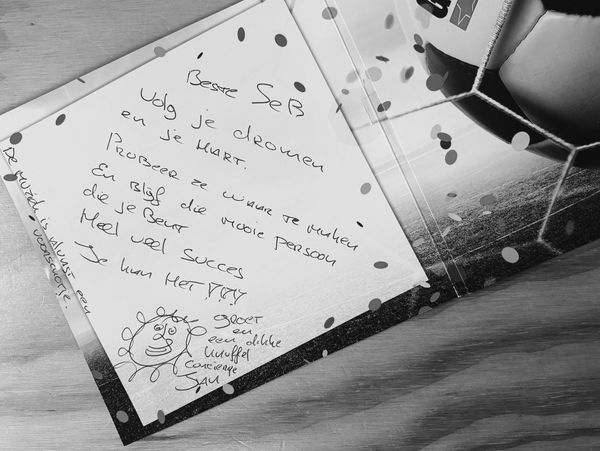 Beste Seb
Volg je dromen
en je hart.
Probeer ze waar te maken
En Blijf die mooie persoon
die je Bent
Heel veel Succes
Je kun het !!!!
groet
en
een dikke
knuffel
conciërge
Jan
De muzch is alvast een
voorschotje.